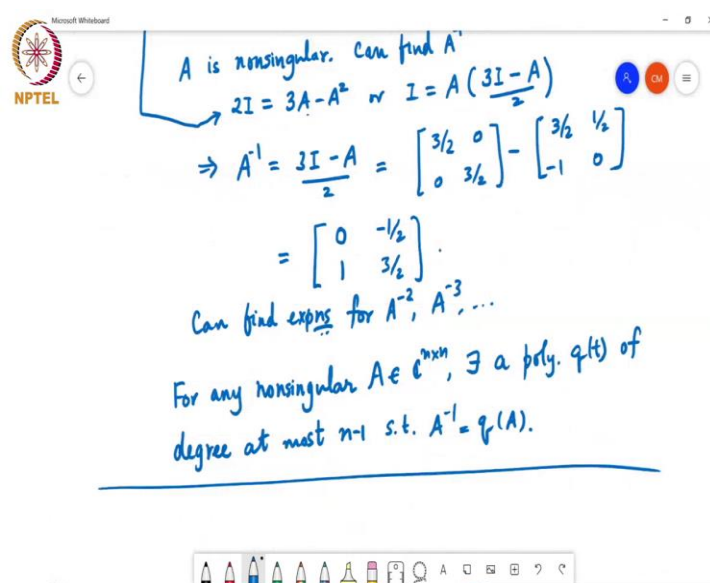 Microsoft Whiteboard
NPTEL
CM
A is nonsingular. Can find A⁻¹
2I = 3A - A² or I = A (3I - A / 2)
⇒ A⁻¹ = 3I - A / 2 = [3/2 0; 0 3/2] - [3/2 1/2; -1 0]
= [0 -1/2; 1 3/2].
Can find expns for A⁻², A⁻³, ...
For any nonsingular A ∈ ℂⁿˣⁿ, ∃ a poly. q(t) of
degree at most n-1 s.t. A⁻¹ = q(A).